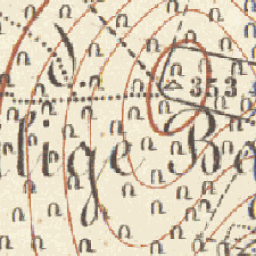 353
lige Ba